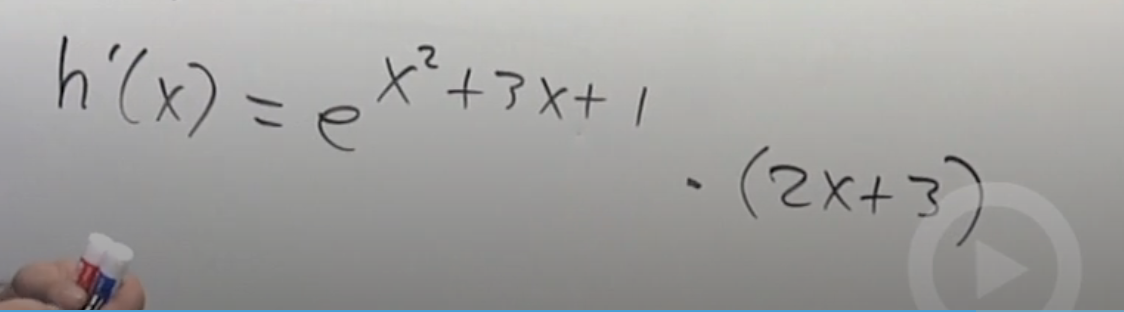 h'(x) = e^{x²+3x+1}
· (2x+3)